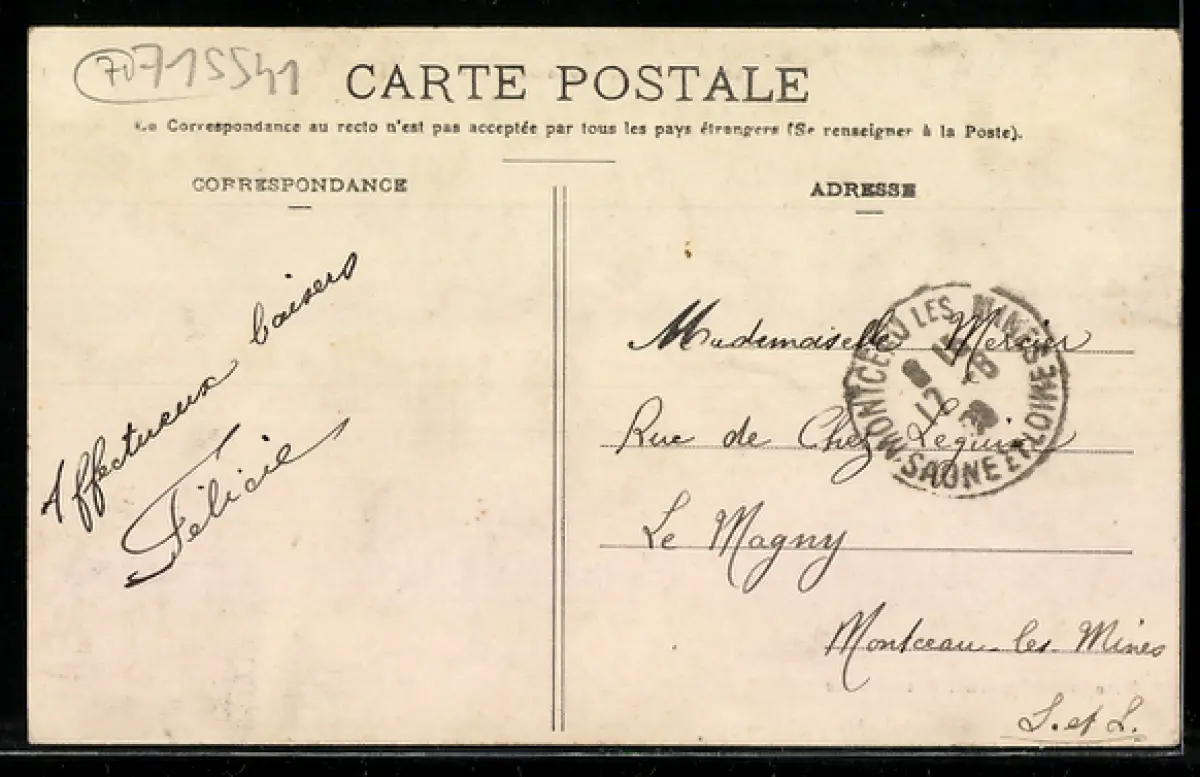 70715541
CARTE POSTALE
La Correspondance au recto n'est pas acceptée par tous les pays étrangers (Se renseigner à la Poste).
CORRESPONDANCE
ADRESSE
Affectueux baisers
Félicie
Mademoiselle Mercier
Rue de Chez Leguin
Le Magny
Montceau-les-Mines
S. et L.
MONTCEAU LES MINES
SAONE ET LOIRE